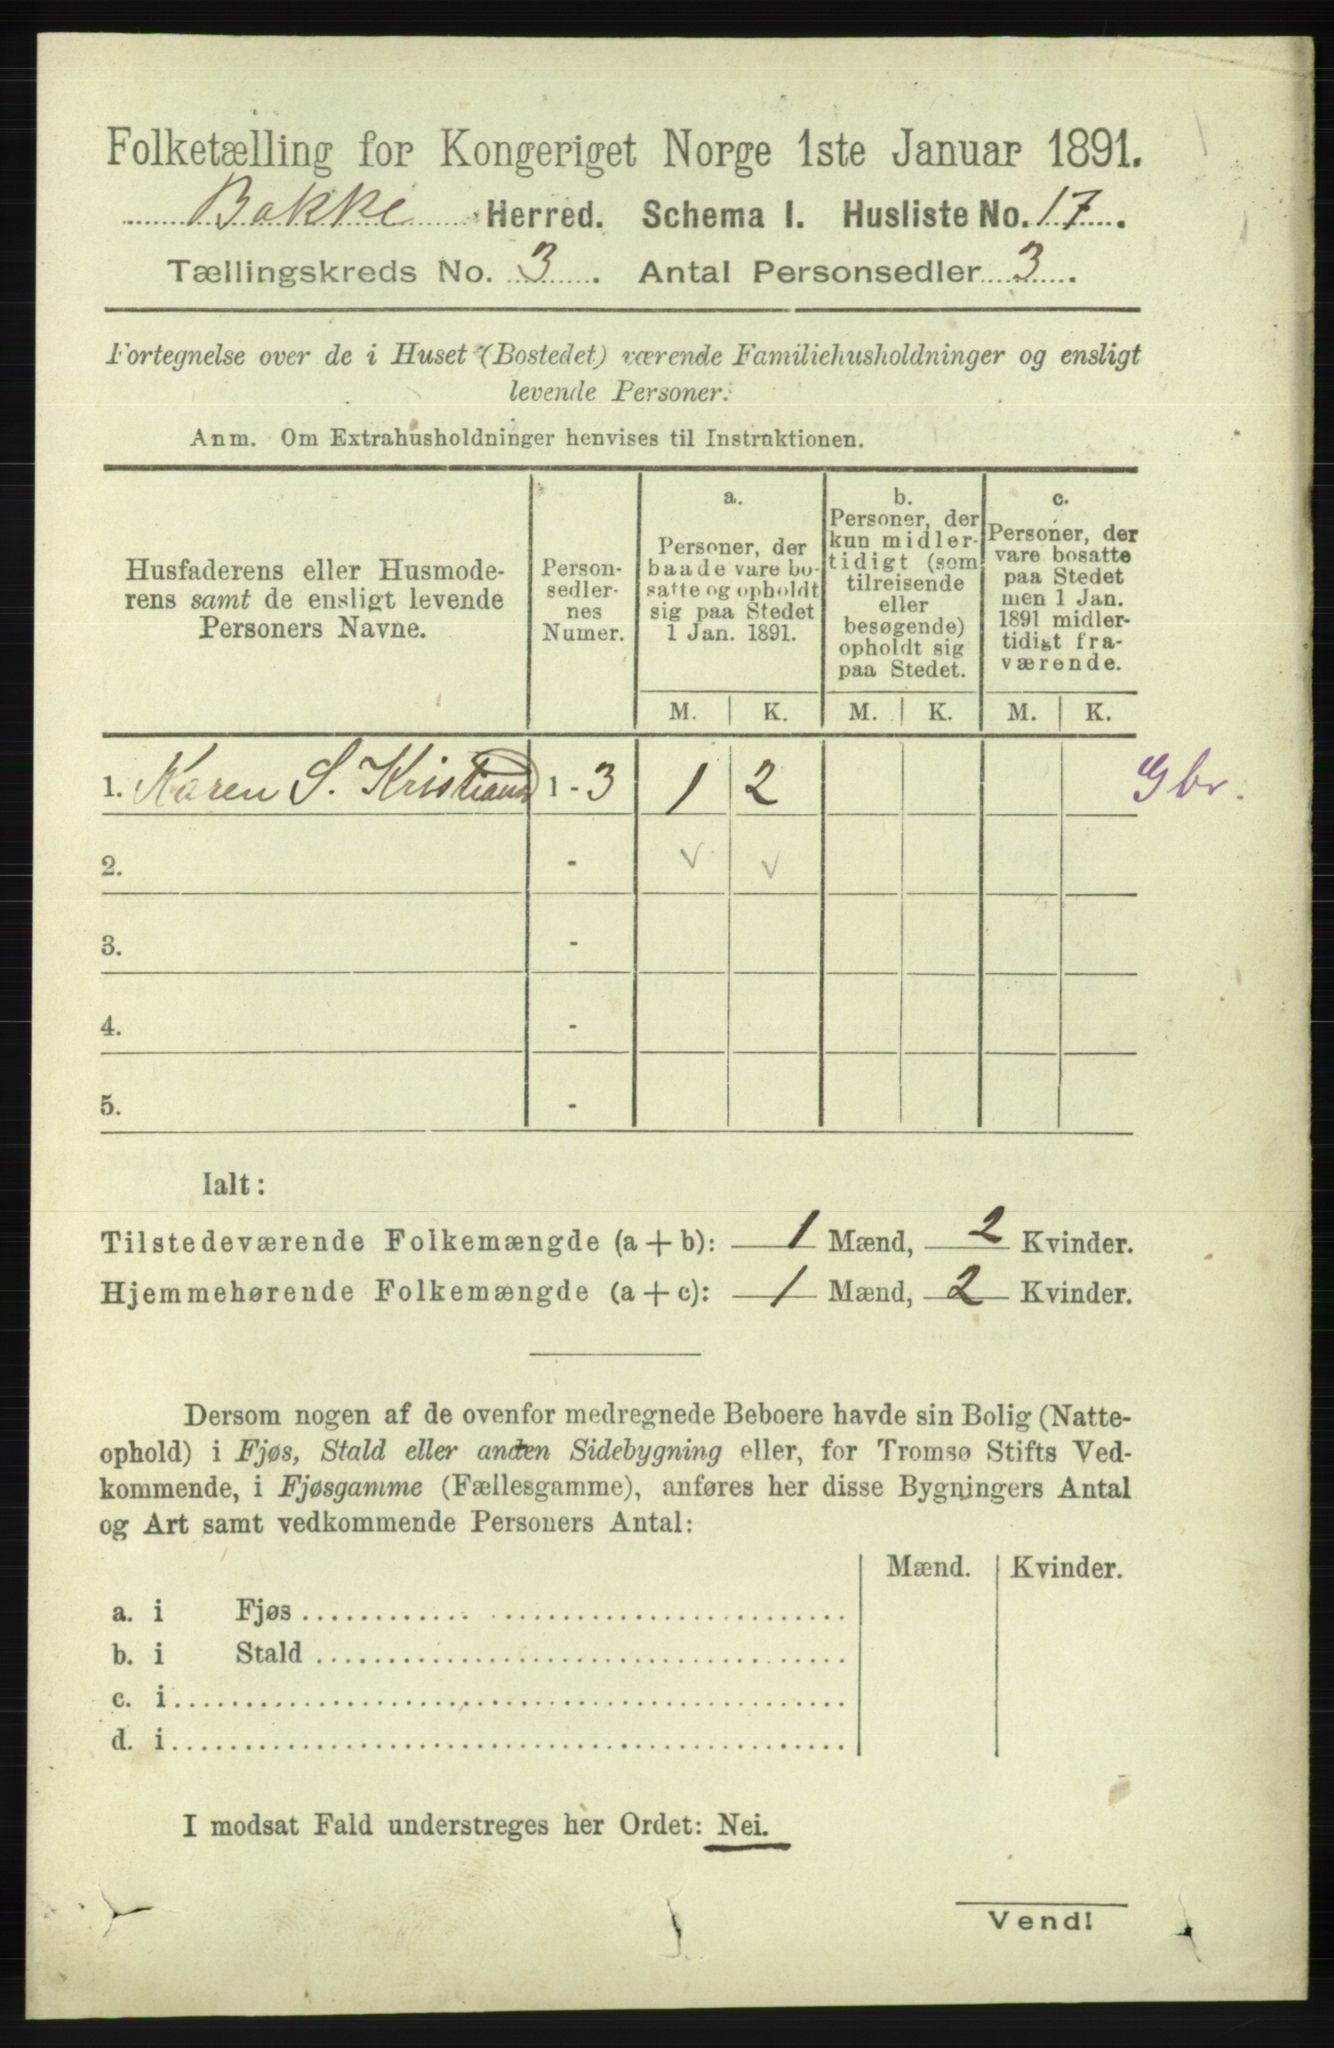 Folketælling for Kongeriget Norge 1ste Januar 1891.
Bakke Herred. Schema I. Husliste No. 17.
Tællingskreds No. 3. Antal Personsedler 3.
Fortegnelse over de i Huset (Bostedet) værende Familiehusholdninger og ensligt
levende Personer.
Anm. Om Extrahusholdninger henvises til Instruktionen.
Husfaderens eller Husmode-
rens samt de ensligt levende
Personers Navne.
Person-
sedler-
nes
Numer.
a.
Personer, der
baade vare bo-
satte og opholdt
sig paa Stedet
1 Jan. 1891.
b.
Personer, der
kun midler-
tidigt (som
tilreisende
eller
besøgende)
opholdt sig
paa Stedet.
c.
Personer, der
vare bosatte
paa Stedet
men 1 Jan.
1891 midler-
tidigt fra-
værende.
M. K. M. K. M. K.
1. Karen S. Kristians 1 - 3 1 2 Gbr.
2. - v v
3. -
4. -
5. -
Ialt:
Tilstedeværende Folkemængde (a + b): 1 Mænd, 2 Kvinder.
Hjemmehørende Folkemængde (a + c): 1 Mænd, 2 Kvinder.
Dersom nogen af de ovenfor medregnede Beboere havde sin Bolig (Natte-
ophold) i Fjøs, Stald eller anden Sidebygning eller, for Tromsø Stifts Ved-
kommende, i Fjøsgamme (Fællesgamme), anføres her disse Bygningers Antal
og Art samt vedkommende Personers Antal:
Mænd. Kvinder.
a. i Fjøs
b. i Stald
c. i
d. i
I modsat Fald understreges her Ordet: Nei.
Vend!